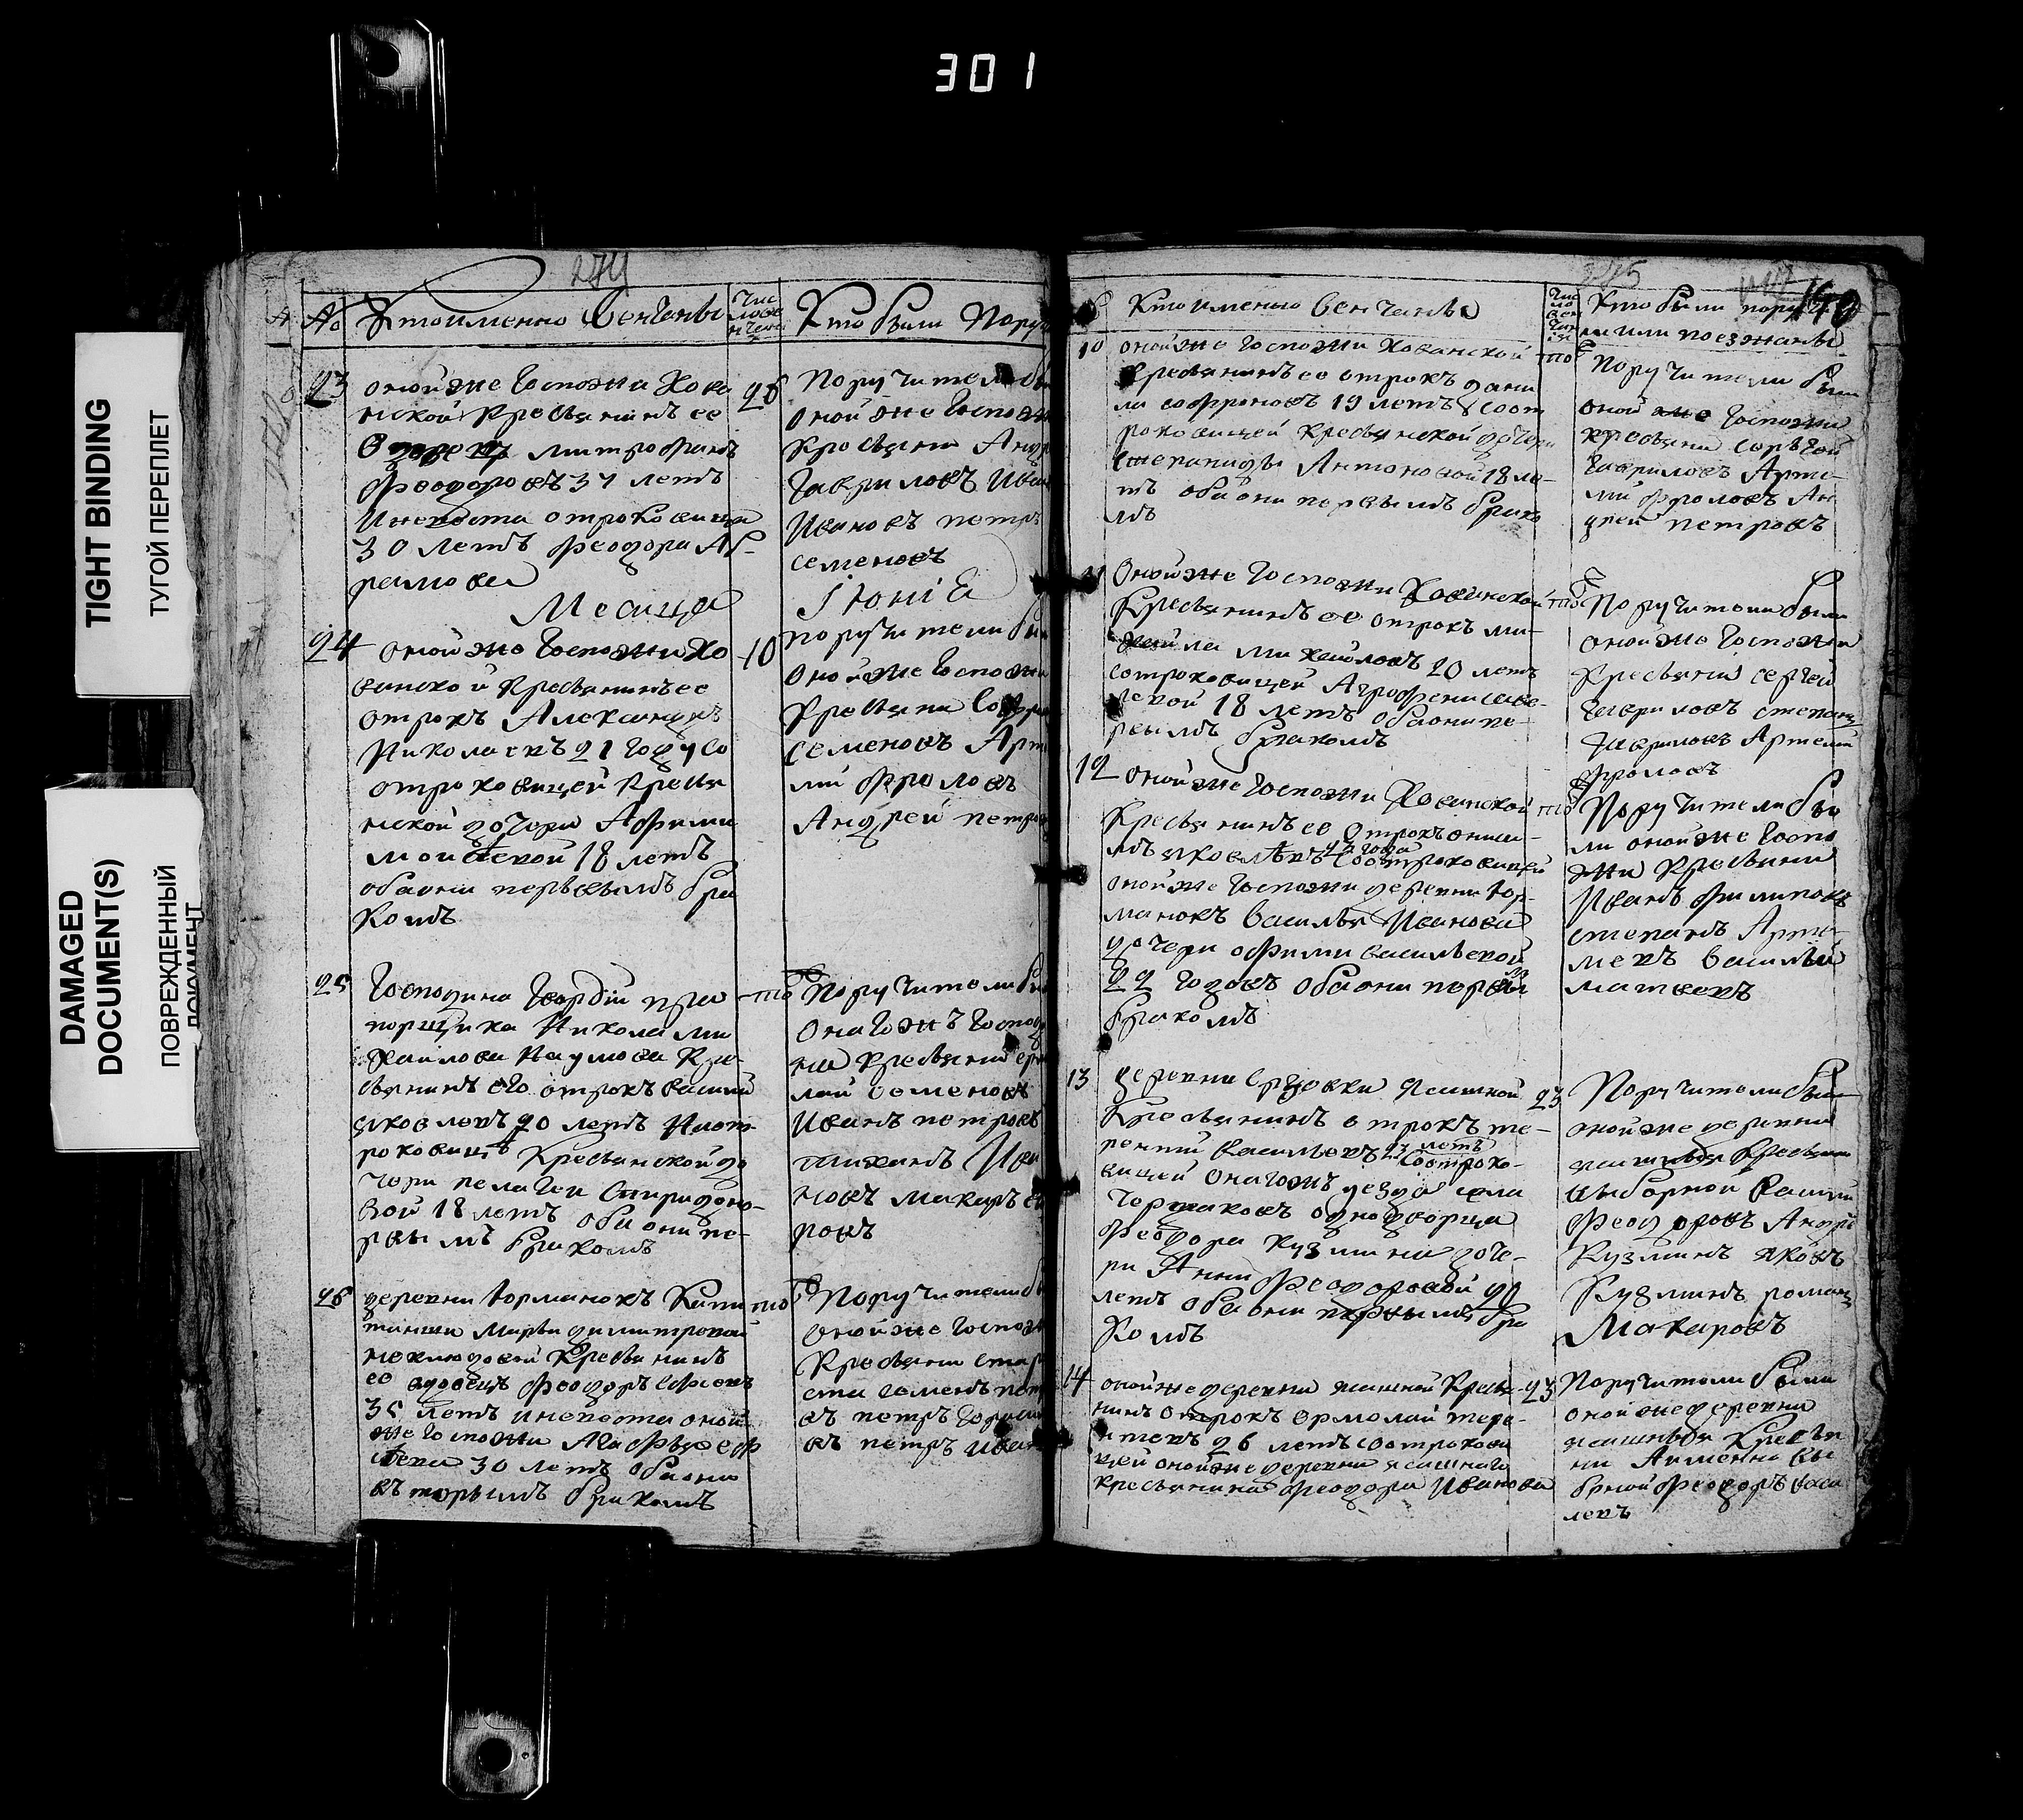 301
TIGHT BINDING
ТУГОЙ ПЕРЕПЛЕТ
DAMAGED
DOCUMENT(S)
ПОВРЕЖДЕННЫЙ
ДОКУМЕНТ
274
№ Кто именно венчаны
Чис
ло
Кто были Пору
23 оной же Госпожи Хова
нской Крестьянинъ ее
митрофанъ
Феодоровъ 37 летъ
И невеста отроковица
30 летъ Феодора Аб-
рамова
26 Поручители
оной же Госпож
Крестьяни Анд
Гавриловъ Иван
Ивановъ петръ
семеновъ
Месяца Iюнiя
24 оной же Госпожи Хо
ванской Крестьянинъ ее
отрокъ Александръ
Николаевъ 21 году со
отроковицей Крестья
нской дочери Афими
18 летъ
оба они первымъ бра
комъ
10 поручители бы
оной же Госпожи
Крестьяни
семеновъ Арте
мiй Фроловъ
Андрей петро
25 Господина Гвардiи пра
порщика Николая ми
хайлова Наумова Кре
стьянинъ его отрокъ василий
яковлевъ 20 летъ И от
роковицѣ Крестьянской до
чери пелагеи Спиридоно-
вой 18 летъ оба они пе-
рвымъ бракомъ
то Поручители бы
онагожъ Господ
на Крестьяни ер
лай семеновъ
Иванъ петровъ
Ива
новъ макаръ
ровъ
26 деревни Юрманокъ Капи
танши Марьи димитровой
неклюдовой Крестьянинъ
ее вдовецъ Феодоръ
35 летъ и невеста оной
же Госпожи
30 летъ оба они
вторымъ бракомъ
то Поручители бы
оной же Госпож
Крестьяни ста
ста семенъ пет
въ петръ
въ петръ Иван
275
140
Кто именно венчаны
Чис
ло
вен
чан
iя
Кто были пору
ли или поезжаны
10 оной же Госпожи Хованской
Крестьянинъ ее отрокъ дани
ла софроновъ 19 летъ со от
роковицей Крестьянской дочери
степаниды Антоновой 18 ле-
тъ оба они первымъ брако
мъ
то Поручители были
оной же Госпожи
крестьяни сергей
Гавриловъ Арте-
мiй Фроловъ Ан
дрей петровъ
11 Оной же Госпожи Хованской
Крестьянинъ ее отрокъ ми-
хайла михайловъ 20 летъ
с отроковицей Агрофени саве-
левой 18 летъ оба они пе-
рвымъ бракомъ
то Поручители были
оной же Госпожи
Крестьяни сергей
Гавриловъ степанъ
Гавриловъ Артемiй
Фроловъ
12 оной же Госпожи Хованской
Крестьянинъ ее Отрокъ ониси-
мъ яковлевъ со отроковицей
оной же Госпожи деревни Юр-
манокъ Василья Иванова
дочери офими васильевой
22 годовъ оба они первым
бракомъ
то Поручители бы
ли оной же Госпо
жи Крестьяни
Иванъ Филиповъ
степанъ Арте-
мевъ Василiй
матвеевъ
13 деревни Ясашной
Крестьянинъ отрокъ те-
рентий Васильевъ летъ со отроко-
вицей онагожъ уезда села
Чертаковъ однодворца
Феодора кузмина доче-
ри Анны Феодоровой 20
летъ оба они первымъ бра
комъ
23 Поручители были
оной же деревни
ясашныя Крестьяни
выборной Василий
Феодоровъ Андре
Кузминъ яковъ
Кузминъ романъ
Макаровъ
14 оной же деревни ясашной Крестья-
нинъ отрокъ ермолай тере-
нтевъ 26 летъ со отрокови
цей оной же деревни ясашнаго
крестьянина Феодора Иванова
23 Поручители были
оной же деревни
ясашныя Крестья
ни Аименно Вы
борной Феодоръ васи
левъ